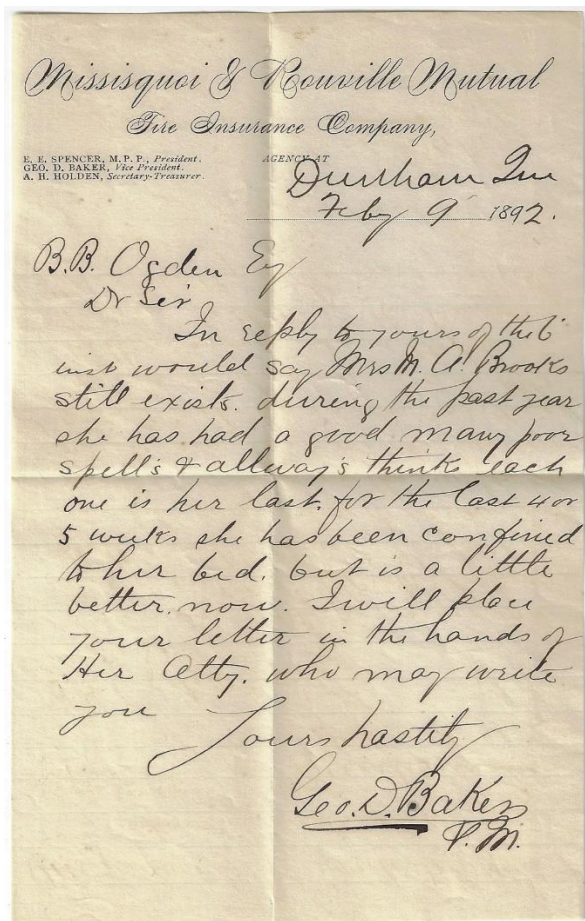 Missisquoi & Rouville Mutual
Fire Insurance Company,
E. E. SPENCER, M.P.P., President.
GEO. D. BAKER, Vice President.
A. H. HOLDEN, Secretary-Treasurer.
AGENCY AT
Durham Que
Feby 9 1892.
B.B. Ogden Esq
Dr Sir
In reply to yours of the 6
inst would say Mrs M. A. Brooks
still exists. during the past year
she has had a good many poor
spell's & allway's thinks each
one is her last. for the last 4 or
5 weeks she has been confined
to her bed. but is a little
better, now. I will place
your letter in the hands of
Her Atty. who may write
you
Yours hastily
Geo. D. Baker
P.M.